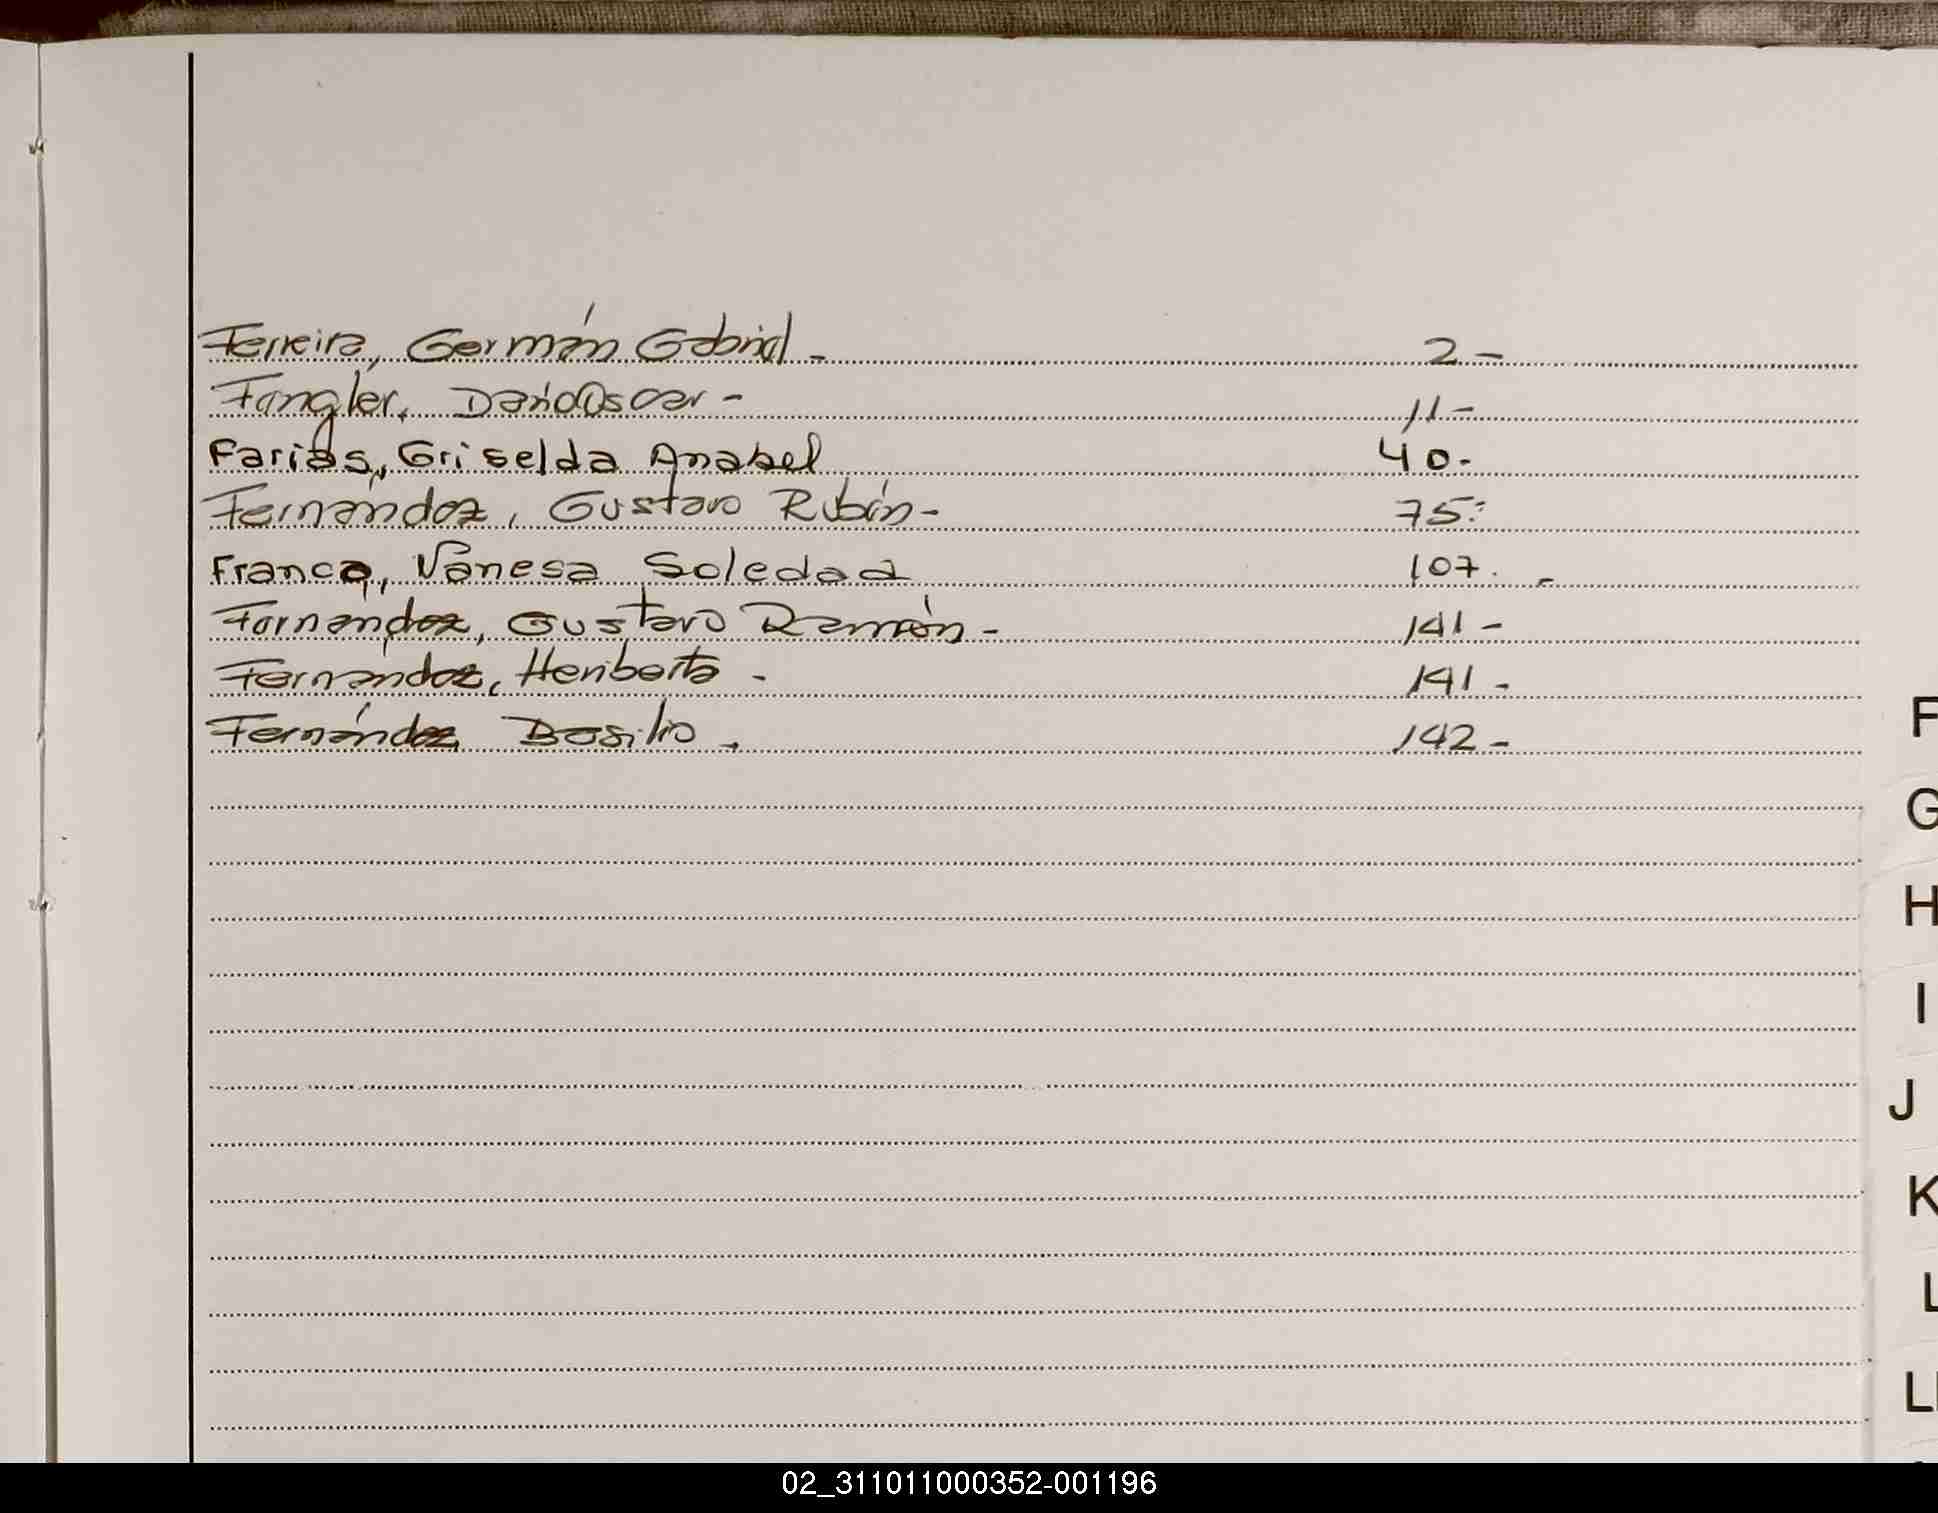 Ferreira, Germán Gabriel - 2 -
Fangler, Darío Oscar - 11 -
Farias, Griselda Anabel 40.-
Fernández, Gustavo Rubén - 75.-
Franco, Vanesa Soledad 107. -
Fernández, Gustavo Ramón - 141 -
Fernández, Heriberto - 141 -
Fernández Basilio. 142 -
F
G
H
I
J
K
L
LL
02_311011000352-001196